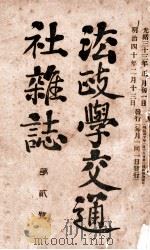 光緒三十三年正月初一日
明治四十年二月十三日發行（每月一回一日發行）
法政學交通
社雜誌
第貳號